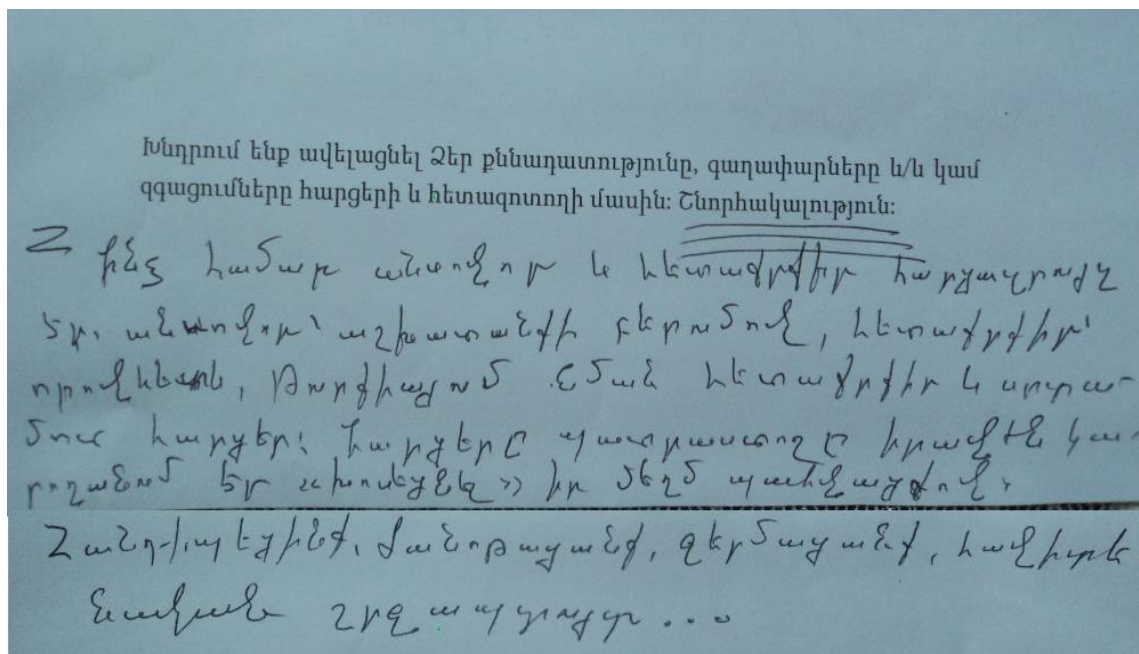 Խնդրում ենք ավելացնել Ձեր քննադատությունը, գաղափարները և/և կամ
զգացումները հարցերի և հետազոտողի մասին: Շնորհակալություն:
Ինչ համար անսովոր և հետաքրքիր հարցազրույց
էր. անսովոր՝ աշխատանքի բերումով, հետաքրքիր՝
որովհետև, թարգիացում նման հետաքրքիր և
հարցեր: Հարցերը պատրաստողը իրավ են կա-
րողանում էր «խոսեցնել» իր մեղմ պահվացքով.
Հանդիպեցինք, ծանոթացանք, ջերմացանք, հավիտե
նական շրջապտույտ...